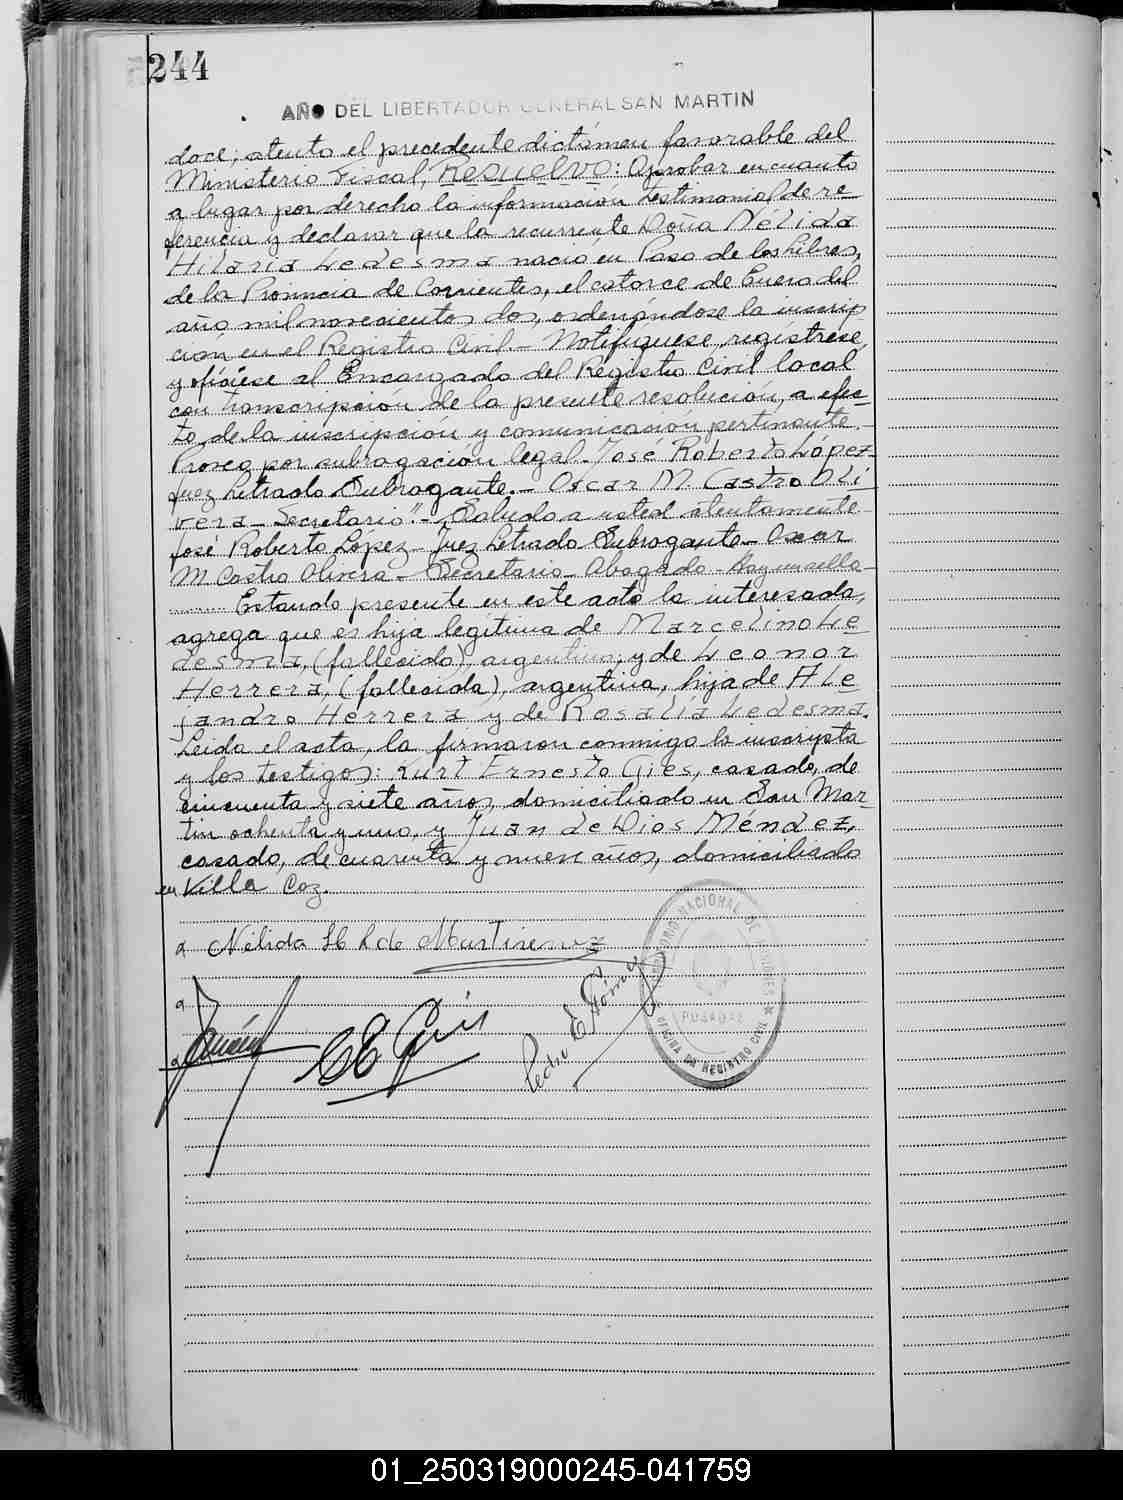 244
AÑO DEL LIBERTADOR GENERAL SAN MARTIN
doce; atento el precedente dictámen favorable del
Ministerio Fiscal, Resuelvo: Aprobar en cuanto
a lugar por derecho la información testimonial de re
ferencia y declarar que la recurrente Doña Nélida
Hilaria Ledesma nació en Paso de los Libres,
de la Provincia de Corrientes, el catorce de Enero del
año mil novecientos dos, ordenándose la inscrip
ción en el Registro Civil.- Notifíquese, regístrese,
y ofíciese al Encargado del Registro Civil local
con transcripción de la presente resolución, a efec-
to, de la inscripción y comunicación pertinente.-
Proveo por subrogación legal.- José Roberto López-
Juez Letrado Subrogante.- Oscar M. Castro Oli
vera - Secretario".- Saludo a usted atentamente-
José Roberto López - Juez Letrado Subrogante - Oscar
M Castro Olivera - Secretario - Abogado - Hay un sello -
Estando presente en este acto la interesada,
agrega que es hija legítima de Marcelino Le
desma, (fallecido), argentino, y de Leonor
Herrera, (fallecida), argentina, hija de Ale
jandro Herrera y de Rosalía Ledesma.
Leida el acta, la firmaron conmigo la inscripta
y los testigos: Kurt Ernesto Gies, casado, de
cincuenta y siete años, domiciliado en San Mar-
tin ochenta y uno, y Juan de Dios Méndez,
casado, de cuarenta y nueve años, domiciliado
en Villa Coz.
Nélida H L de Martinez
Pedro E Gómez
NACIONAL DE MISIONES
POSADAS
OFICINA DE REGISTRO CIVIL
01_250319000245-041759